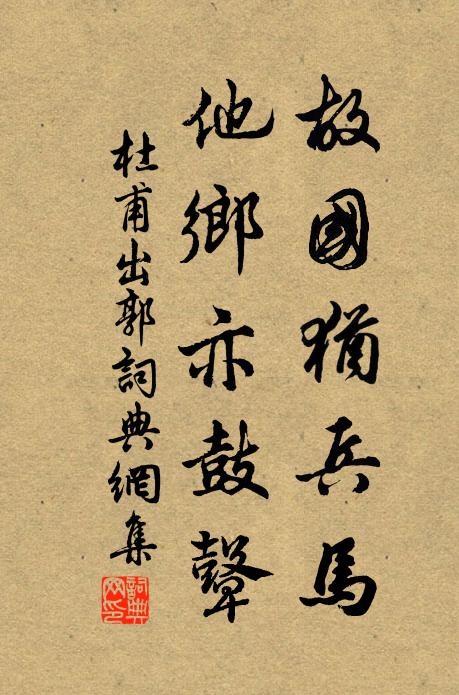 故國猶兵馬
他鄉亦鼓鼙
杜甫出郭詞典網集
詞典網印